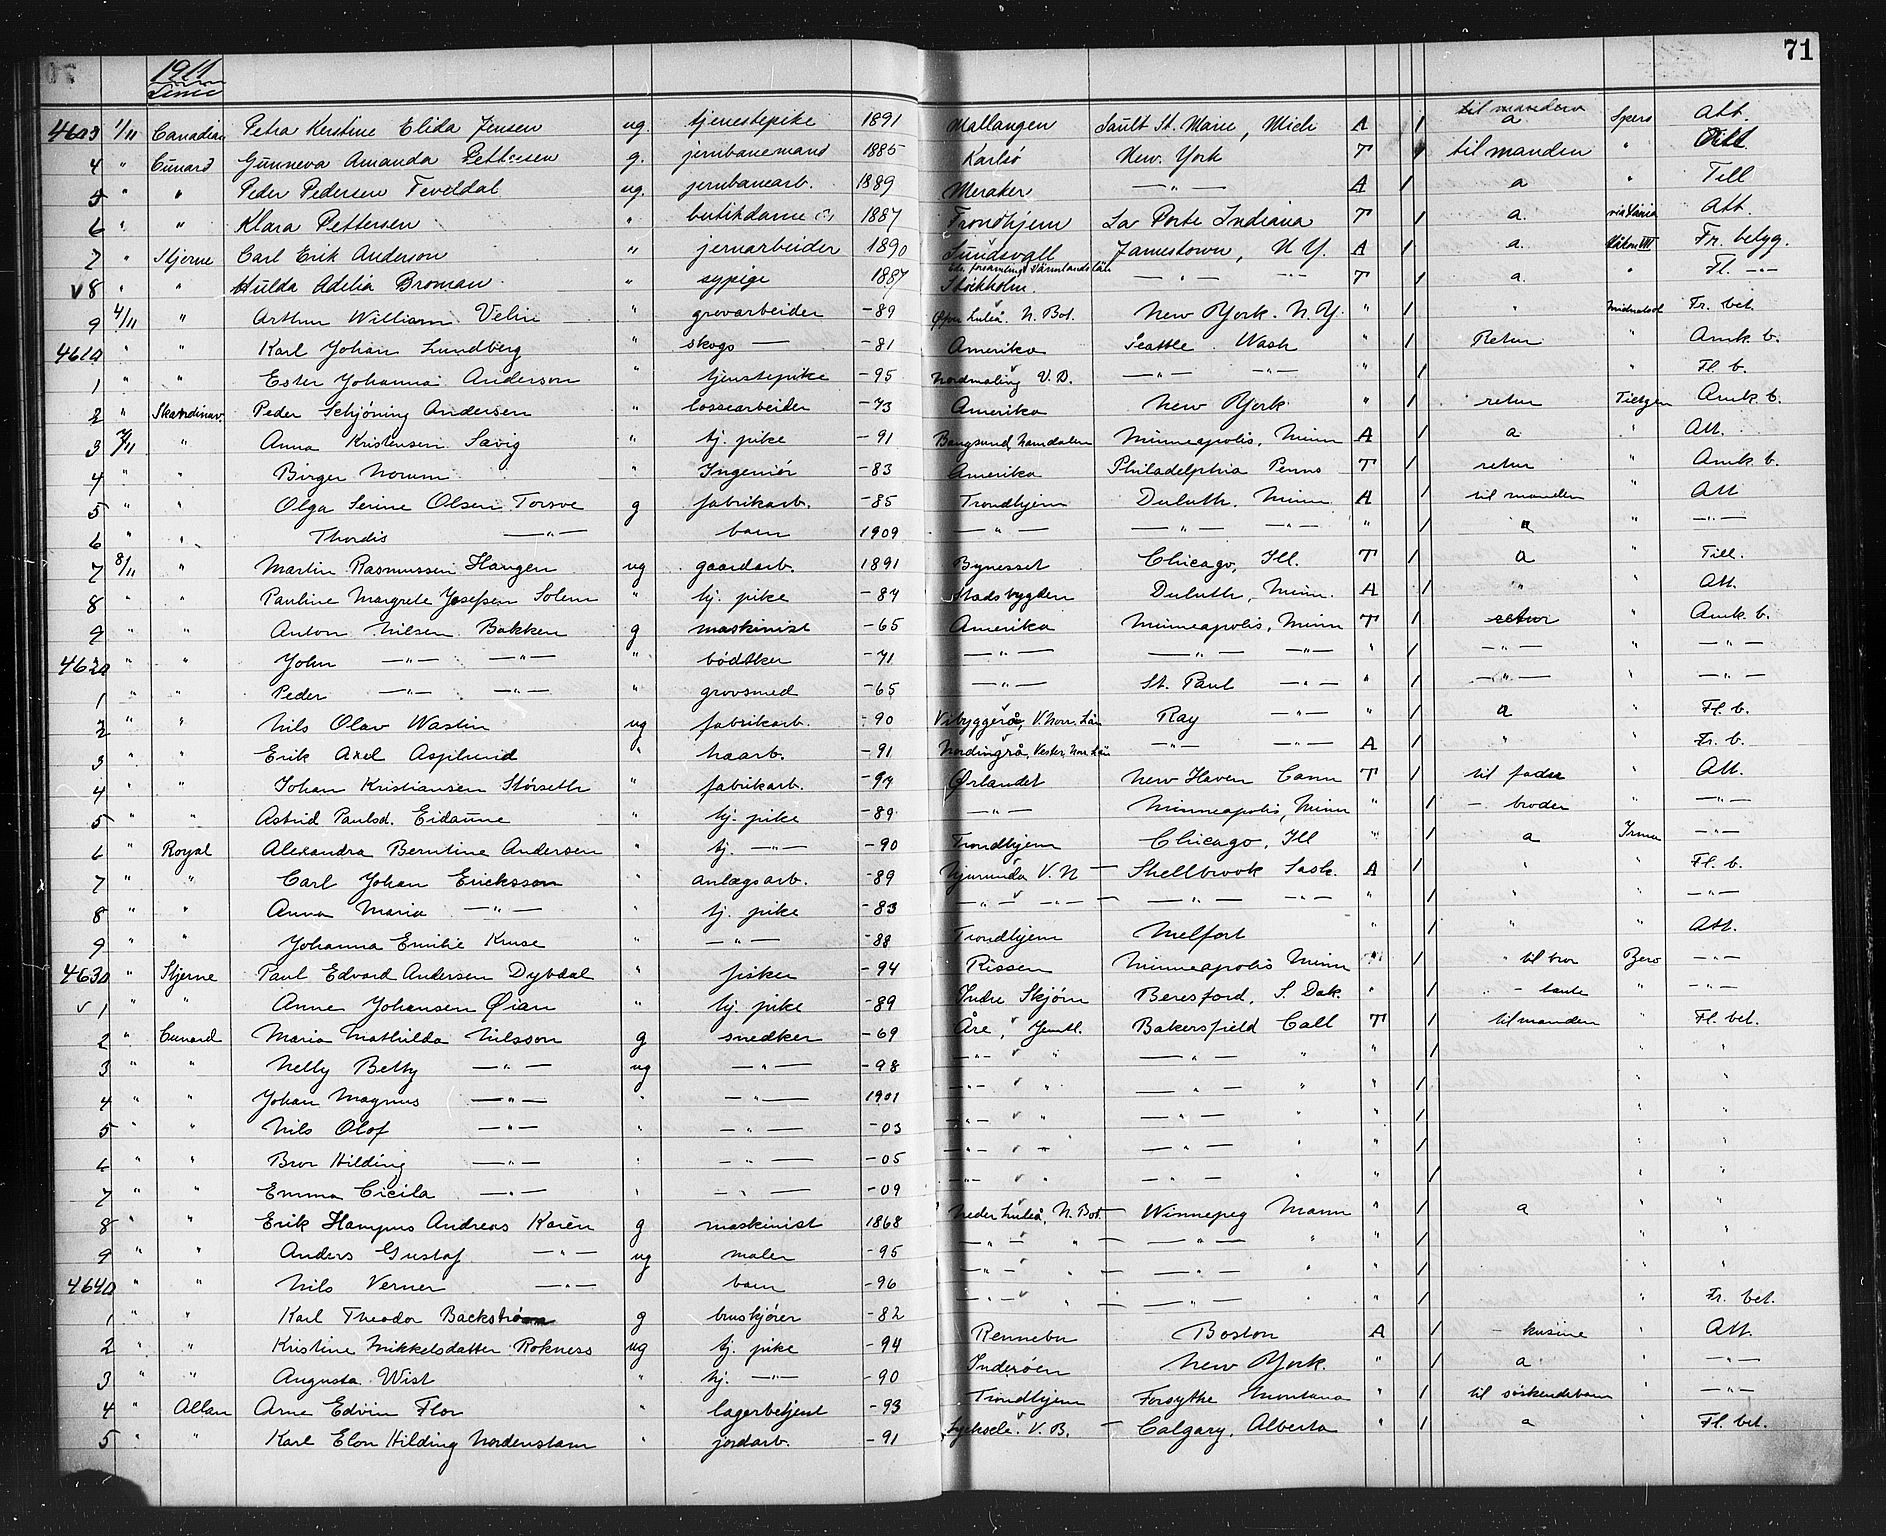 1911 71
Linie
4603 1/11 Canadian Petra Kerstine Elida Jensen ug. tjenestepike 1891 Mallangen Sault St. Marie, Mich A / til manden a Spero Att.
4 " Cunard Gunneva Amanda Pettersen g. jernbanemand 1885 Karlsö New York T / til manden " Till
5 " " Peder Pedersen Teveldal ug. jernbanearb. 1889 Meraker —"— A / a " Till
6 " " Klara Pettersen " butikdame 1887 Trondhjem La Porte Indiana T / a via Vania Att.
7 " Stjerne Carl Erik Anderson " jernarbeider 1890 Sundsvall Jamestown, N.Y. A / a Håkon VII Fr. betyg.
v8 " " Hulda Adelia Broman " sypige 1887 Stockholm —"— —"— T / a " Fl. —"—
9 4/11 " Arthur William Velin " grovarbeider -89 Öfver Luleå. N. Bot. New York. N.Y. " / " Midnatsol Fr. bet.
4610 " " Karl Johan Lundberg " skogs — -81 Amerika Seattle Wash " / Retur " Amk b.
1 " " Ester Johanna Anderson " tjenstepike -95 Nordmaling V.B. —"— —"— " / " Fl. b.
2 " Skandinav. Peder Schjöning Andersen " lossearbeider -73 Amerika New York " / retur Tietgen Amk b.
3 7/11 " Anna Kristensen Savig " tj. pike -91 Bangsund, Namdalen Minneapolis, Minn A / a " Att.
4 " " Birger Norum " Ingeniör -83 Amerika Philadelphia Penns T / retur " Amk b.
5 " " Olga Serine Olsen Torsve g fabrikarb. -85 Trondhjem Duluth, Minn A / til manden " Att
6 " " Thordis —"— barn 1909 —"— —"— —"— " / " " —"—
7 8/11 " Martin Rasmussen Haugen ug gaardarb. 1891 Bynesset Chicago, Ill. T / a " Till.
8 " " Pauline Margrete Josefsen Solem " tj. pike -84 Stadsbygden Duluth, Minn. A / " " Att.
9 " " Anton Nilsen Bakken g maskinist -65 Amerika Minneapolis, Minn T / retur " Amk b.
4620 " " John —"— —"— " bødtker -71 —"— —"— —"— " / —"— " —"—
1 " " Peder —"— —"— " grovsmed -65 —"— St. Paul —"— " / —"— " —"—
2 " " Nils Olav Wastin ug fabrikarb. -90 Vibyggerå, V. Norr. Län Ray —"— " / a " Fl. b.
3 " " Erik Axel Asplund " haarb. -91 Nordingrå, Vester Nor. Län —"— —"— A / " " Fr. b.
4 " " Johan Kristiansen Störseth " fabrikarb. -94 Ørlandet New Haven Conn T / til fader " Att.
5 " " Astrid Paulsd. Eidaune " tj. pike -89 —"— Minneapolis, Minn " / — broder " —"—
6 " Royal Alexandra Berntine Andersen " tj. —"— -90 Trondhjem Chicago, Ill " / a Irma —"—
7 " " Carl Johan Ericksson " anlægsarb. -89 Njurunda V.N — Shellbrook Sask. A / " " Fl. b.
8 " " Anna Maria —"— " tj. pike -83 —"— —"— —"— —"— " / " " —"—
9 " " Johanna Emilie Kruse " —"— -88 Trondhjem Melfort " / " " Att.
4630 " Stjerne Paul Edvard Andersen Dybdal " fisker -94 Rissen Minneapolis Minn " / " til bror Zero —"—
v1 " " Anne Johansen Øian " tj. pike -89 Indre Skjørn Beresford, S. Dak. " / " — tante " —"—
2 " Cunard Maria Mathilda Nilsson g snedker -69 Åre, Jemtl. Bakersfield Call T / til manden " Fl. bet.
3 " " Nelly Betty —"— ug —"— -98 —"— " —"— " " / " "
4 " " Johan Magnus —"— " —"— 1901 —"— " —"— " " / " "
5 " " Nils Olof —"— —"— -03 —"— " —"— " " / " "
6 " " Bror Hilding —"— " —"— -05 —"— " —"— " " / " "
7 " " Emma Cicila —"— " —"— -09 —"— " —"— " " / " "
8 " " Erik Hampus Andreas Karén g maskinist 1868 Neder Luleå, N. Bot. — Winnepeg Mann " / a " "
9 " " Anders Gustaf —"— ug maler -95 —"— " —"— " " / " "
4640 " " Nils Verner —"— barn -96 —"— " —"— " " / " "
1 " " Karl Theodor Backström g bruskjører -82 —"— " —"— " " / " Fr. bet.
2 " " Kristine Mikkelsdatter Rokness ug tj. pike -94 Rennebu Boston A / — kusine " Att.
3 " " Augusta Wist " tj. —"— -90 Inderöen New York " / a " —"—
4 " Allan Arne Edvin Flor " lagerbetjent -93 Trondhjem Forsythe Montana " / til söskendebarn " —"—
5 " " Karl Elon Hilding Nordenstam " jordarb. -91 Lycksele. V.B. — Calgary, Alberta " / a " Fl. bet.